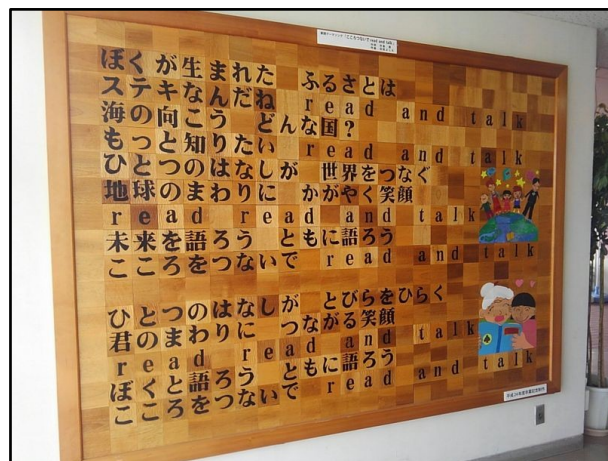 「こころつないで read and talk」
ぼくが生まれた ふるさとは
ステキなんだね read and talk
海の向こう どんな国?
もっと知りたい read and talk
ひとつのはなしが 世界をつなぐ
地球のまわりに かがやく笑顔
read read and talk
未来を語ろう ともに語ろう
こころをつないで read and talk
ひとつのはなしが とびらをひらく
君のまわりに つながる笑顔
read read and talk
ぼくと語ろう ともに語ろう
こころをつないで read and talk